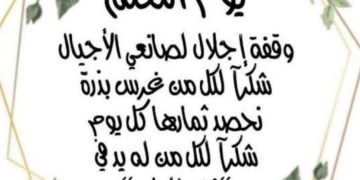 يوم المعلم
وقفة إجلال لصانعي الأجيال
شكراً لكل من غرس بذرة
نحصد ثمارها كل يوم
شكراً لكل من له يد في